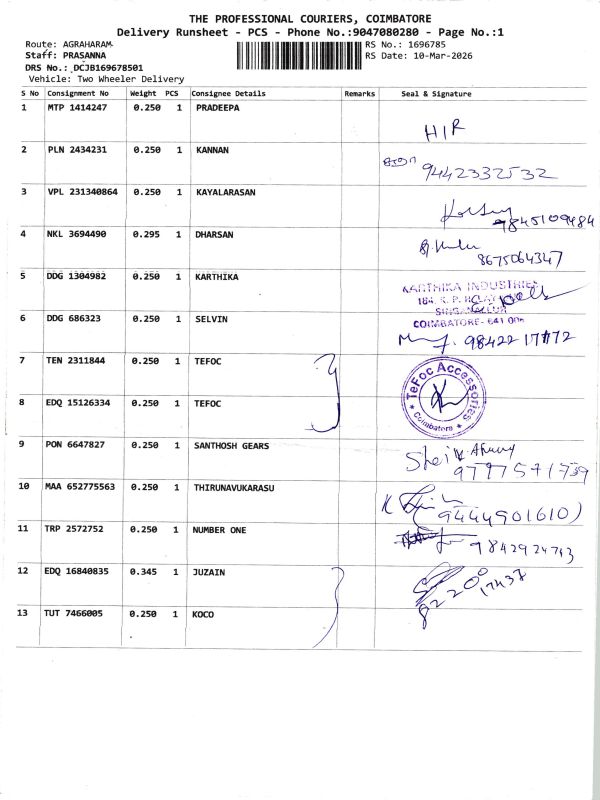 THE PROFESSIONAL COURIERS, COIMBATORE
Delivery Runsheet - PCS - Phone No.:9047080280 - Page No.:1
Route: AGRAHARAM
Staff: PRASANNA
DRS No.: DCJB169678501
Vehicle: Two Wheeler Delivery
RS No.: 1696785
RS Date: 10-Mar-2026
S No Consignment No Weight PCS Consignee Details Remarks Seal & Signature
1 MTP 1414247 0.250 1 PRADEEPA
HIR
2 PLN 2434231 0.250 1 KANNAN
9442332532
3 VPL 231340864 0.250 1 KAYALARASAN
9845109484
4 NKL 3694490 0.295 1 DHARSAN
8675064347
5 DDG 1304982 0.250 1 KARTHIKA
KARTHIKA INDUSTRIES
SINGANALLUR
COIMBATORE-
6 DDG 686323 0.250 1 SELVIN
98422 17772
7 TEN 2311844 0.250 1 TEFOC
TeFoc Accessories
Coimbatore
8 EDQ 15126334 0.250 1 TEFOC
9 PON 6647827 0.250 1 SANTHOSH GEARS
10 MAA 652775563 0.250 1 THIRUNAVUKARASU
9444901610)
11 TRP 2572752 0.250 1 NUMBER ONE
12 EDQ 16840835 0.345 1 JUZAIN
13 TUT 7466005 0.250 1 KOCO